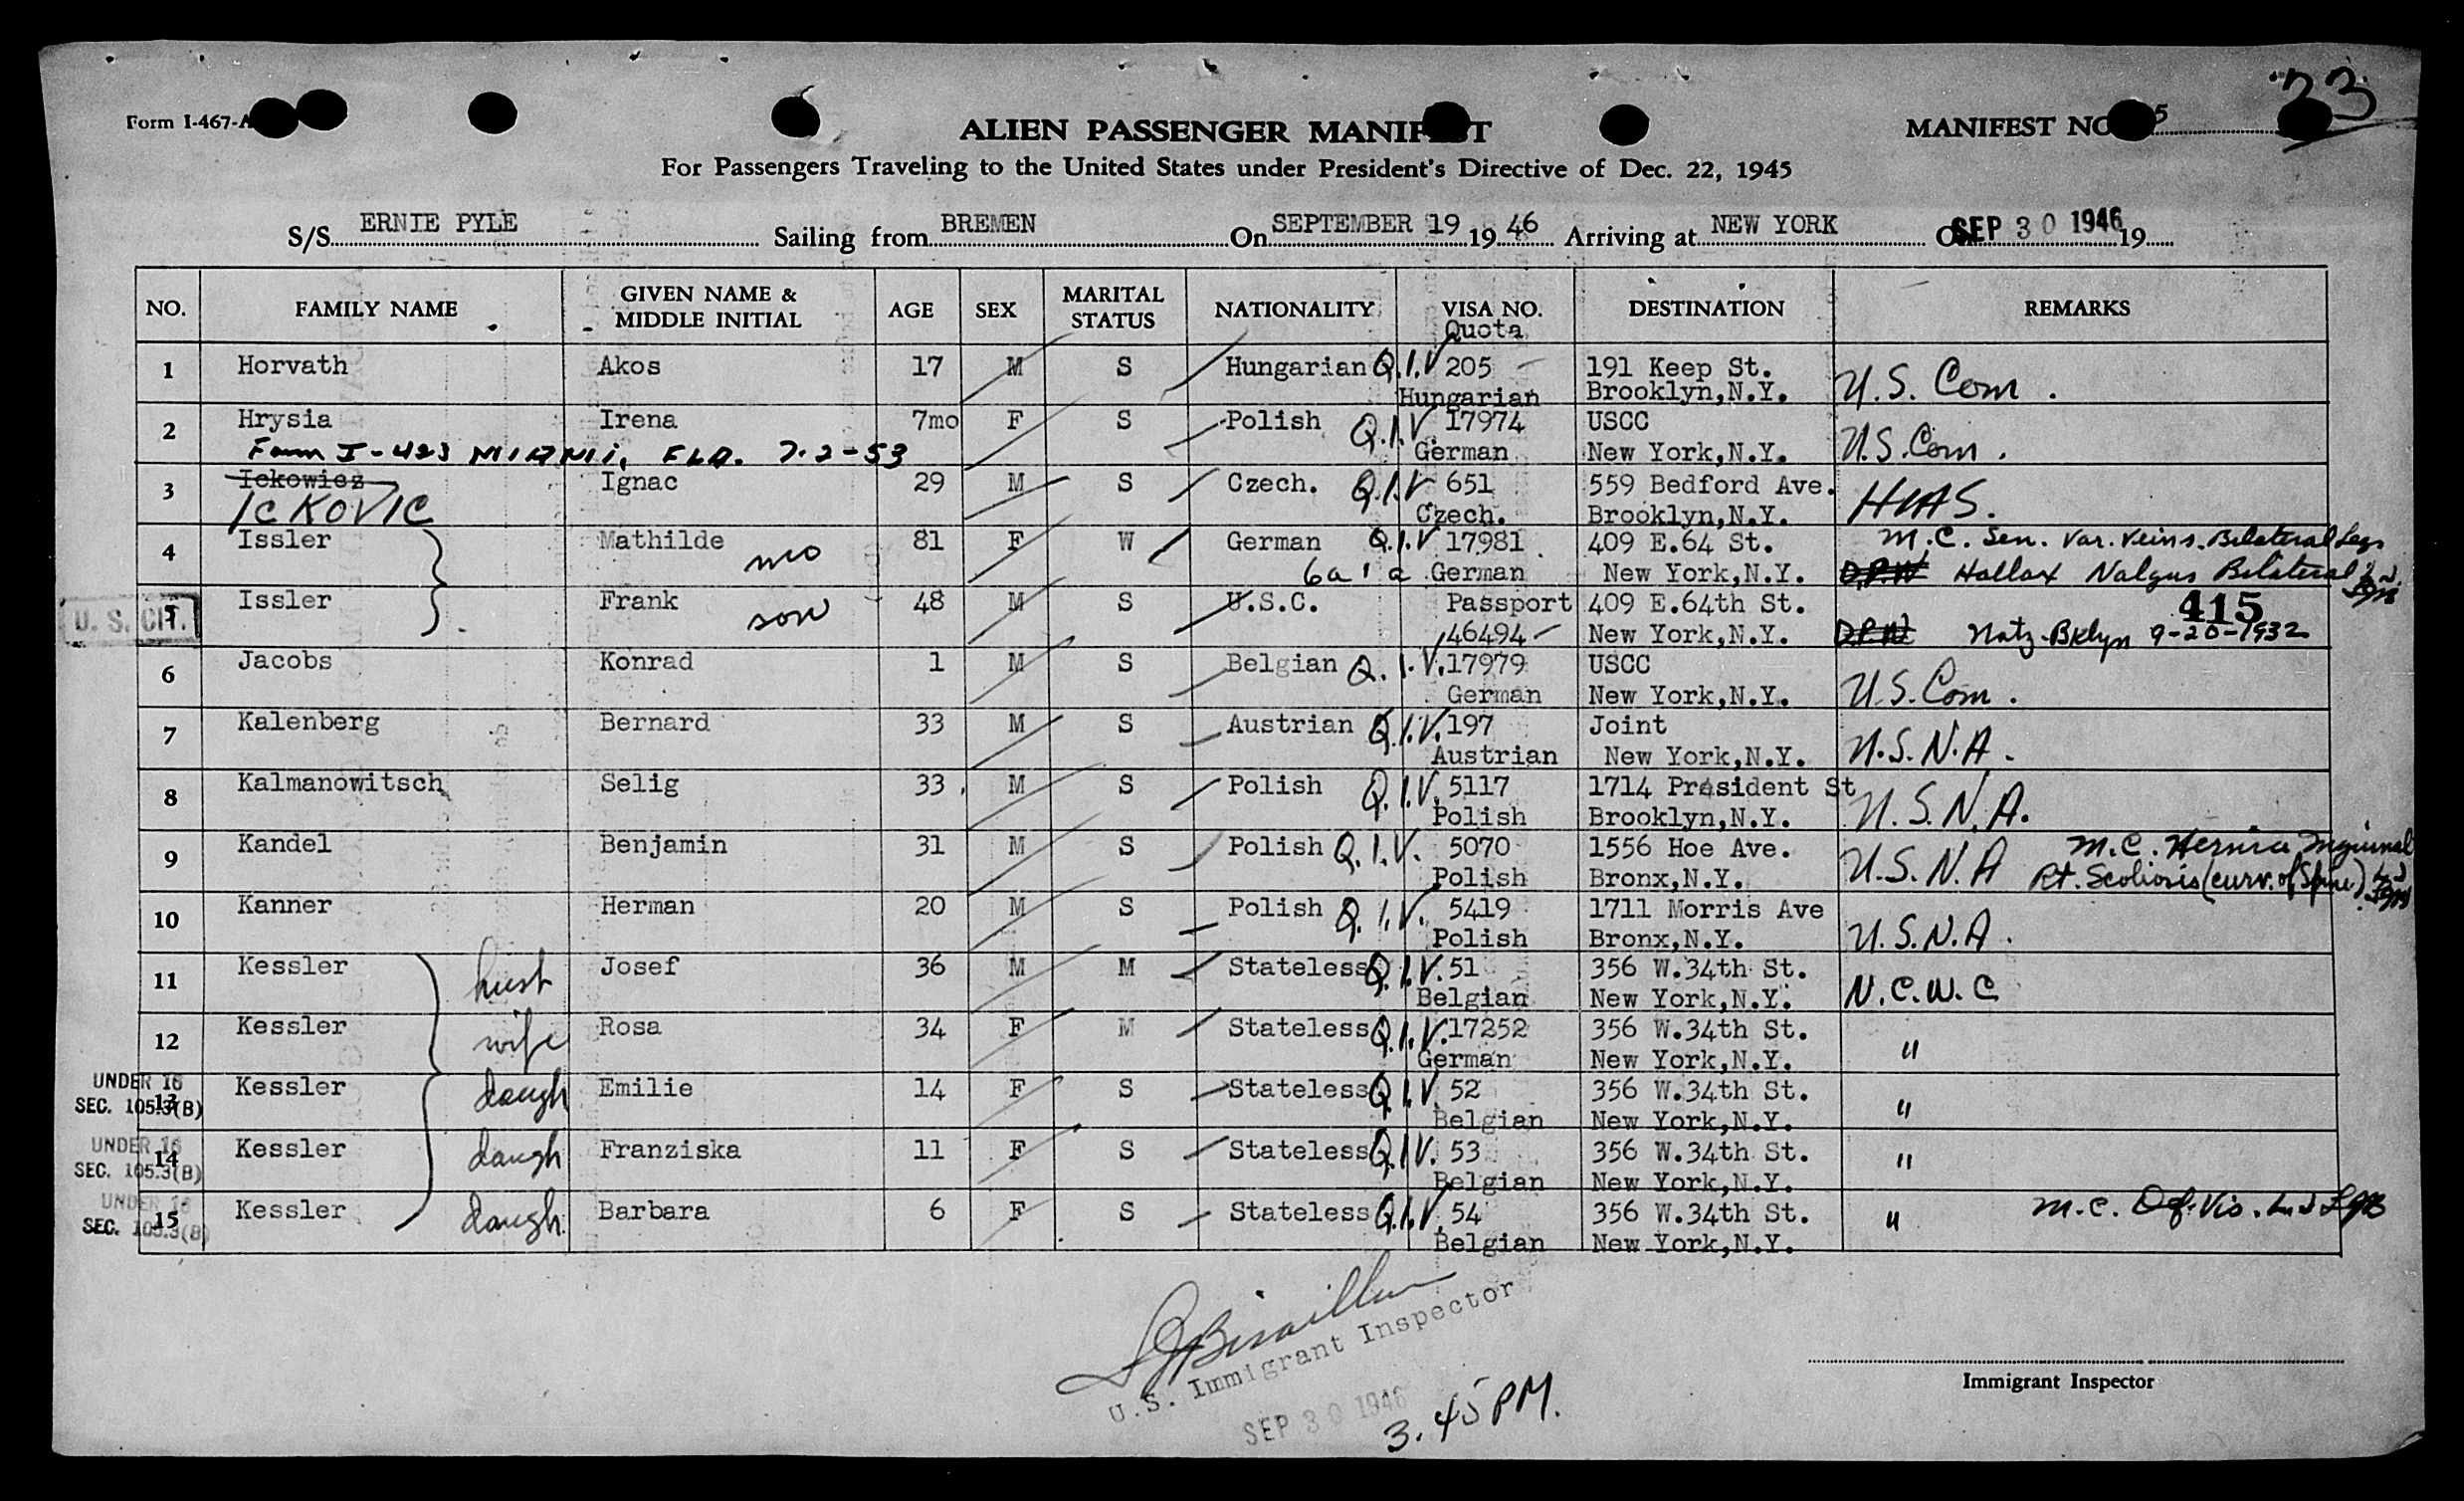 23
Form I-467-A
ALIEN PASSENGER MANIFEST
MANIFEST NO. 5
For Passengers Traveling to the United States under President's Directive of Dec. 22, 1945
S/S ERNIE PYLE Sailing from BREMEN On SEPTEMBER 19 19 46 Arriving at NEW YORK On SEP 30 1946 19
NO. FAMILY NAME GIVEN NAME & MIDDLE INITIAL AGE SEX MARITAL STATUS NATIONALITY VISA NO. Quota DESTINATION REMARKS
1 Horvath Akos 17 M S Hungarian Q.I.V 205 191 Keep St.
Hungarian Brooklyn,N.Y. U.S. Com.
2 Hrysia Irena 7mo F S Polish Q.I.V. 17974 USCC
Form I-423 MIAMI, FLA. 7-2-53 German New York,N.Y. U.S.Com.
3 Ickowicz Ignac 29 M S Czech. Q.I.V 651 559 Bedford Ave.
ICKOVIC Czech. Brooklyn,N.Y. HIAS.
4 Issler Mathilde mo 81 F W German Q.I.V 17981 409 E.64 St. M.C. Sen. Var. Veins. Bilateral Legs
6a1a German New York,N.Y. D.P.W Hallax Valgus Bilateral
U. S. CIT. 5 Issler Frank son 48 M S U.S.C. Passport 409 E.64th St. 415
46494 New York,N.Y. D.P.W Natz-Bklyn 9-20-1932
6 Jacobs Konrad 1 M S Belgian Q.I.V. 17979 USCC
German New York,N.Y. U.S.Com.
7 Kalenberg Bernard 33 M S Austrian Q.I.V. 197 Joint
Austrian New York,N.Y. U.S.N.A.
8 Kalmanowitsch Selig 33 M S Polish Q.I.V. 5117 1714 President St
Polish Brooklyn,N.Y. U.S.N.A.
9 Kandel Benjamin 31 M S Polish Q.I.V. 5070 1556 Hoe Ave. M.C. Hernia Inguinal
Polish Bronx,N.Y. U.S.N.A Rt. Scoliosis (curv. of Spine)
10 Kanner Herman 20 M S Polish Q.I.V. 5419 1711 Morris Ave
Polish Bronx,N.Y. U.S.N.A.
11 Kessler husb Josef 36 M M Stateless Q.I.V. 51 356 W.34th St.
Belgian New York,N.Y. N.C.W.C
12 Kessler wife Rosa 34 F M Stateless Q.I.V. 17252 356 W.34th St.
German New York,N.Y. "
UNDER 16 SEC. 105.3(B) 13 Kessler daugh Emilie 14 F S Stateless Q.I.V. 52 356 W.34th St.
Belgian New York,N.Y. "
UNDER 16 SEC. 105.3(B) 14 Kessler daugh Franziska 11 F S Stateless Q.I.V. 53 356 W.34th St.
Belgian New York,N.Y. "
UNDER 16 SEC. 105.3(B) 15 Kessler daugh. Barbara 6 F S Stateless Q.I.V. 54 356 W.34th St. " M.C. Def. Vis.
Belgian New York,N.Y.
U.S. Immigrant Inspector
Immigrant Inspector
SEP 30 1946
3.45 PM.